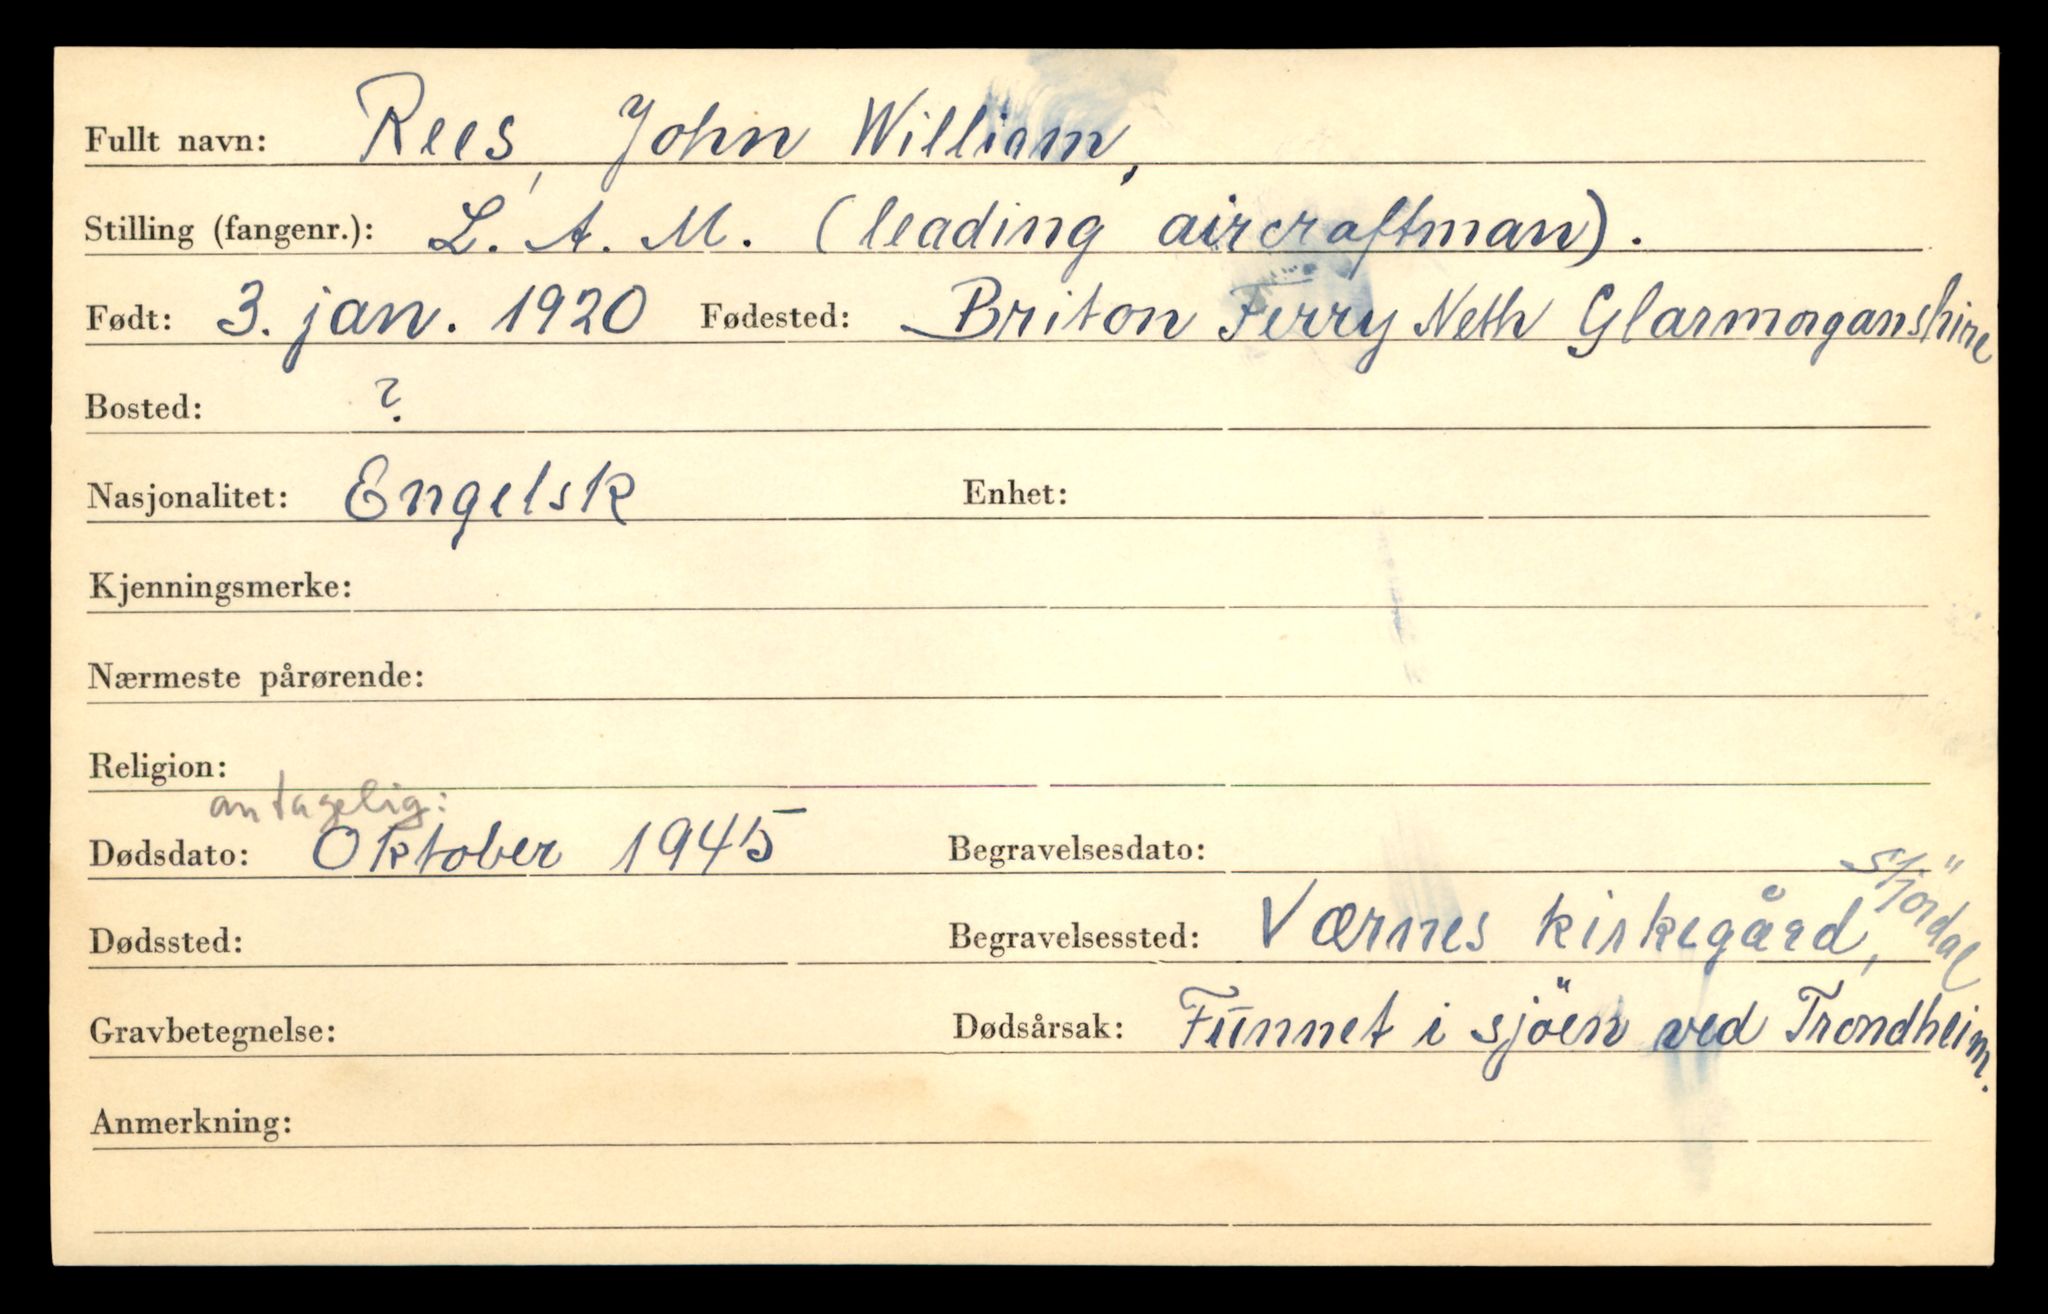 Fullt navn: Rees, John William,
Stilling (fangenr.): L. A. M. (leading aircraftman).
Født: 3. jan. 1920 Fødested: Briton Ferry Neth Glarmorganshire
Bosted: ?
Nasjonalitet: Engelsk Enhet:
Kjenningsmerke:
Nærmeste pårørende:
Religion:
antagelig:
Dødsdato: Oktober 1945 Begravelsesdato:
Dødssted: Begravelsessted: Værnes kirkegård, Stjördal
Gravbetegnelse: Dødsårsak: Funnet i sjöen ved Trondheim.
Anmerkning: